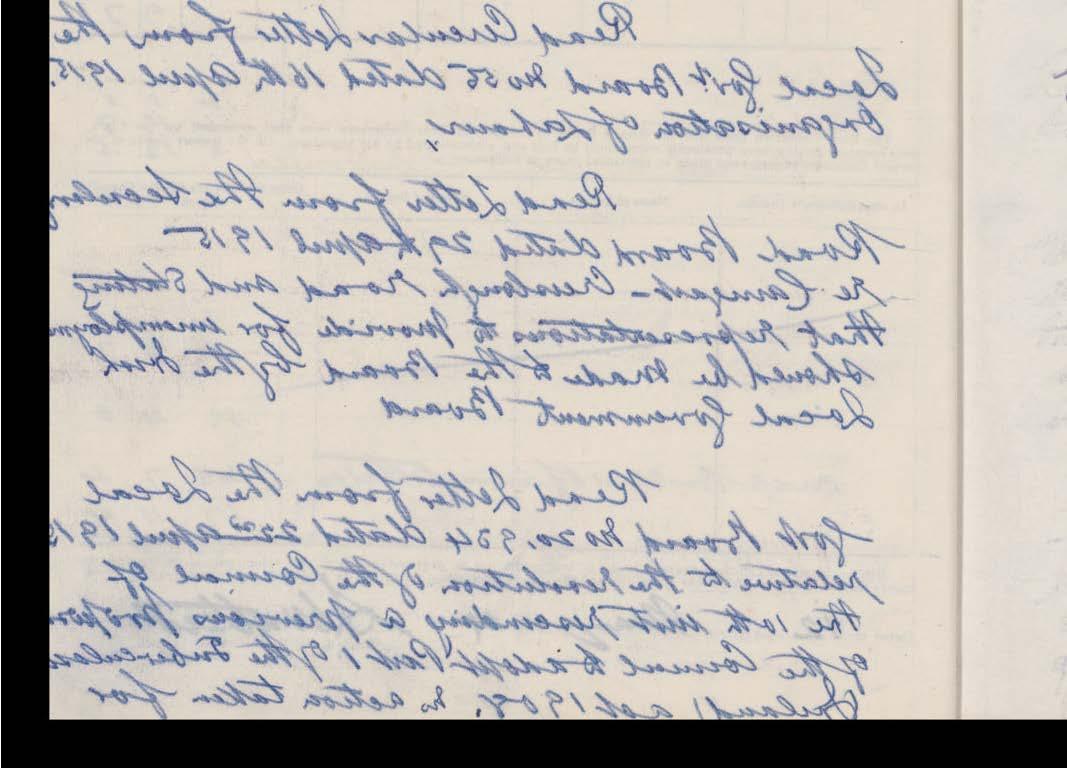 Read Circular Letter from the
Local Govt. Board No 55 dated 16th April 1915.
Organisation of Labour
Read Letter from the Secretary
Road Board dated 29th April 1915
re Creeslough Road and Stating
that representations to provide for unemploym
should be made to the Board by the Irish
Local Government Board
Read Letter from the Local
Govt Board No 20,934 dated 22nd April 1915
relative to the resolution of the Council of
the 10th inst rescinding a previous
of the Council to adopt Part 1 of the Tuberculosis
Ireland) act 1908. No action taken for